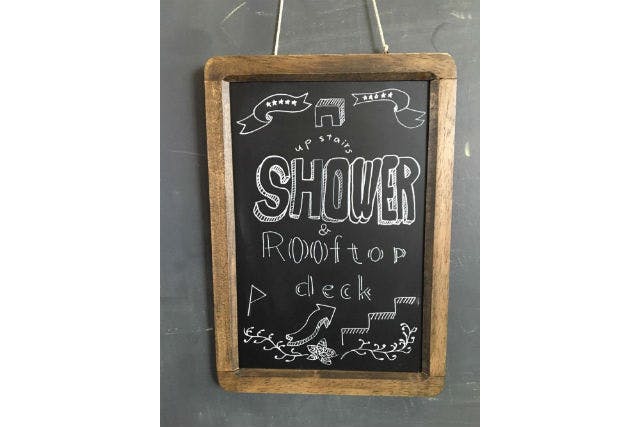 up stairs
SHOWER
&
Rooftop
deck
P